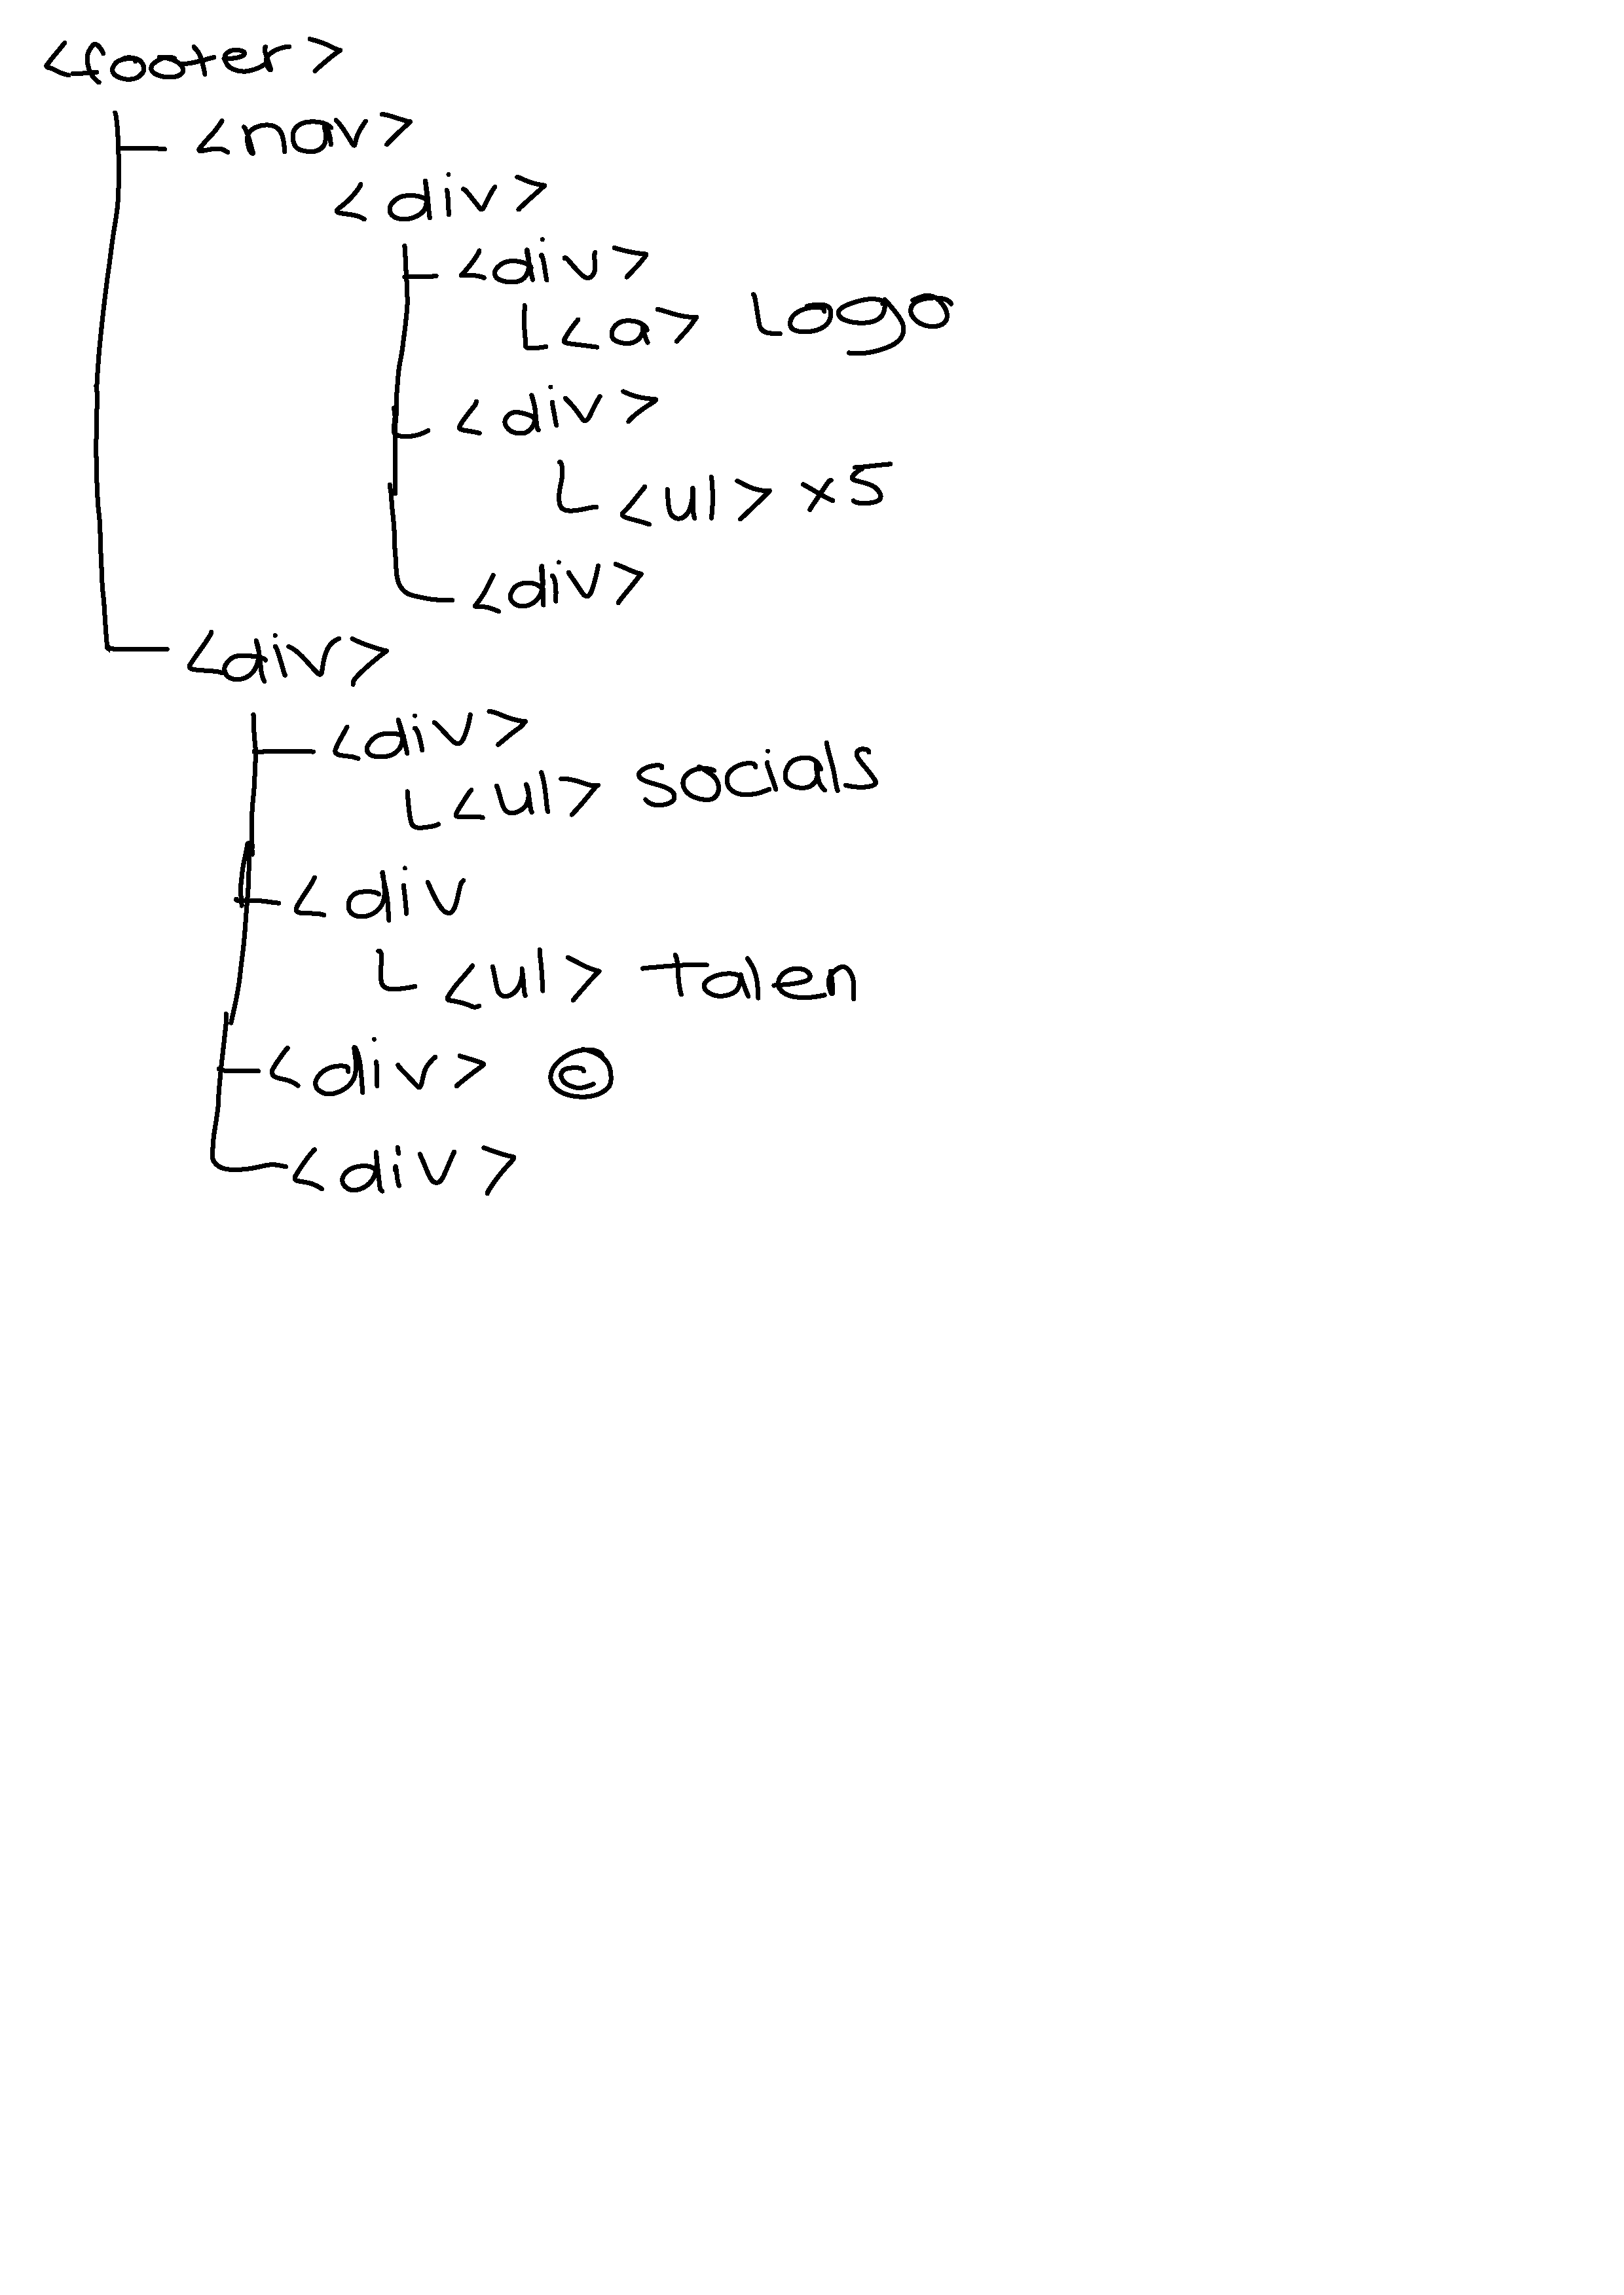 <footer>
<nav>
<div>
<div>
<a> Logo
<div>
<ul> x5
<div>
<div>
<div>
<ul> socials
<div
<ul> talen
<div> ©
<div>